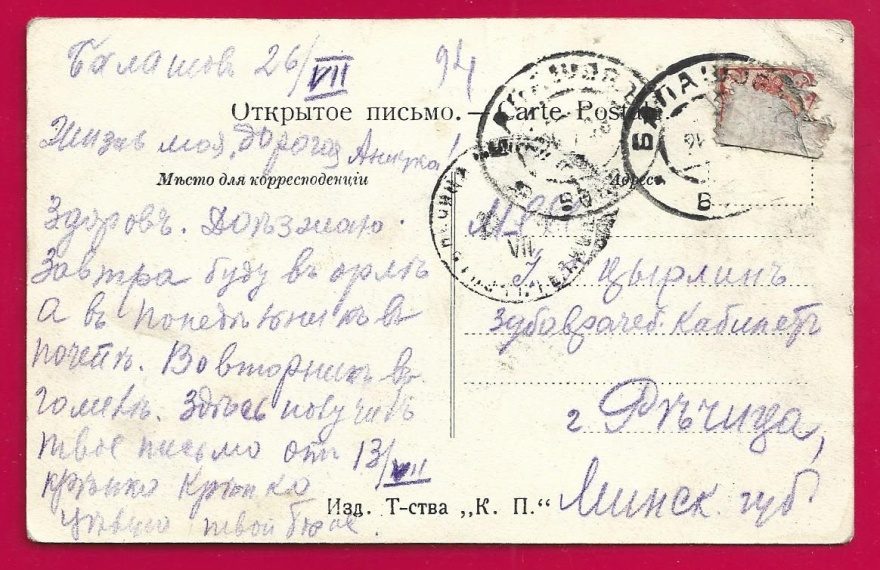 Балашов 26/VII
Открытое письмо. — Carte Postale
Жизнь моя, дорогая Анютка!
Мѣсто для корреспонденціи
Адресъ
Здоровъ. Доѣзжаю.
Завтра буду въ орлѣ
а въ понедѣльникъ въ
почепѣ. Во вторникъ въ
гомелѣ. Здѣсь получилъ
твое письмо отъ 13/VII
крѣпко крѣпко
цѣлую твой
У Цырлинъ
Зубоврачеб. Кабинетъ
г Рѣчица,
Минск. губ
Изд. Т-ства „К. П.“
БАЛАШОВЪ
VII